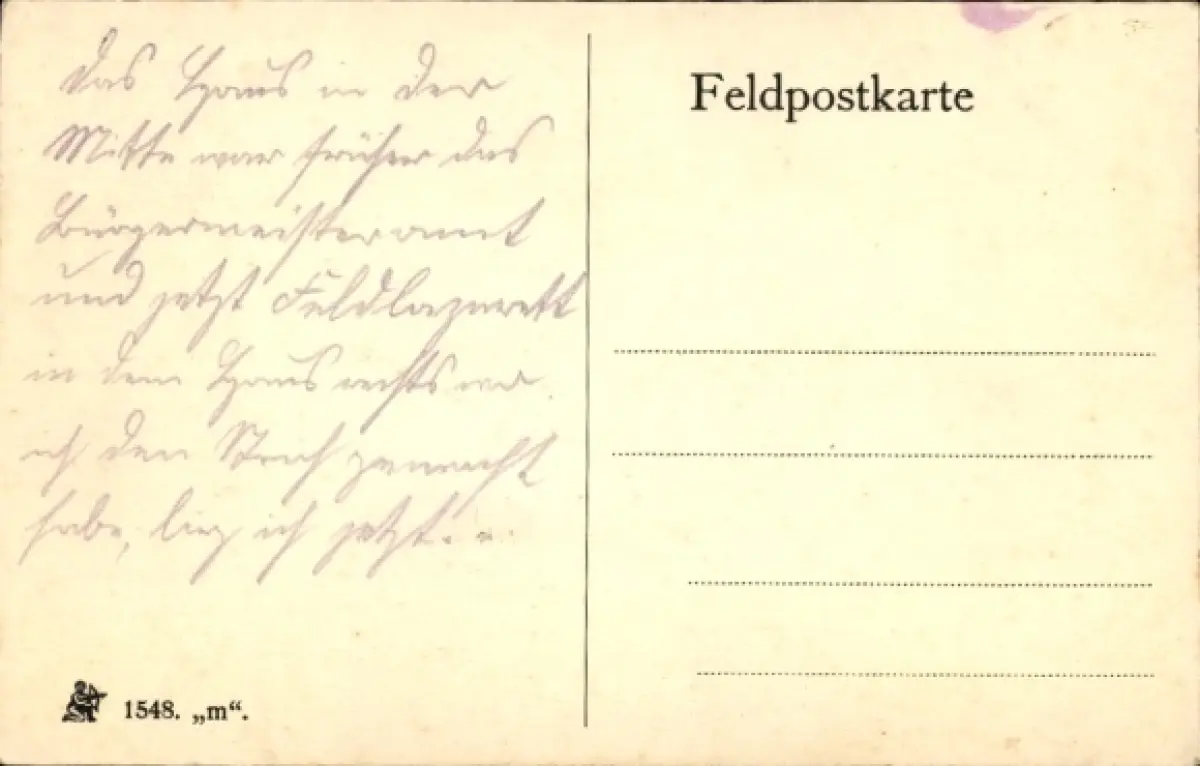 Das Haus in der
Mitte war früher das
Bürgermeisteramt
und jetzt Feldlazarett
in dem Haus rechts wo
ich den Strich gemacht
habe, lieg ich jetzt. . .
Feldpostkarte
1548. „m“.